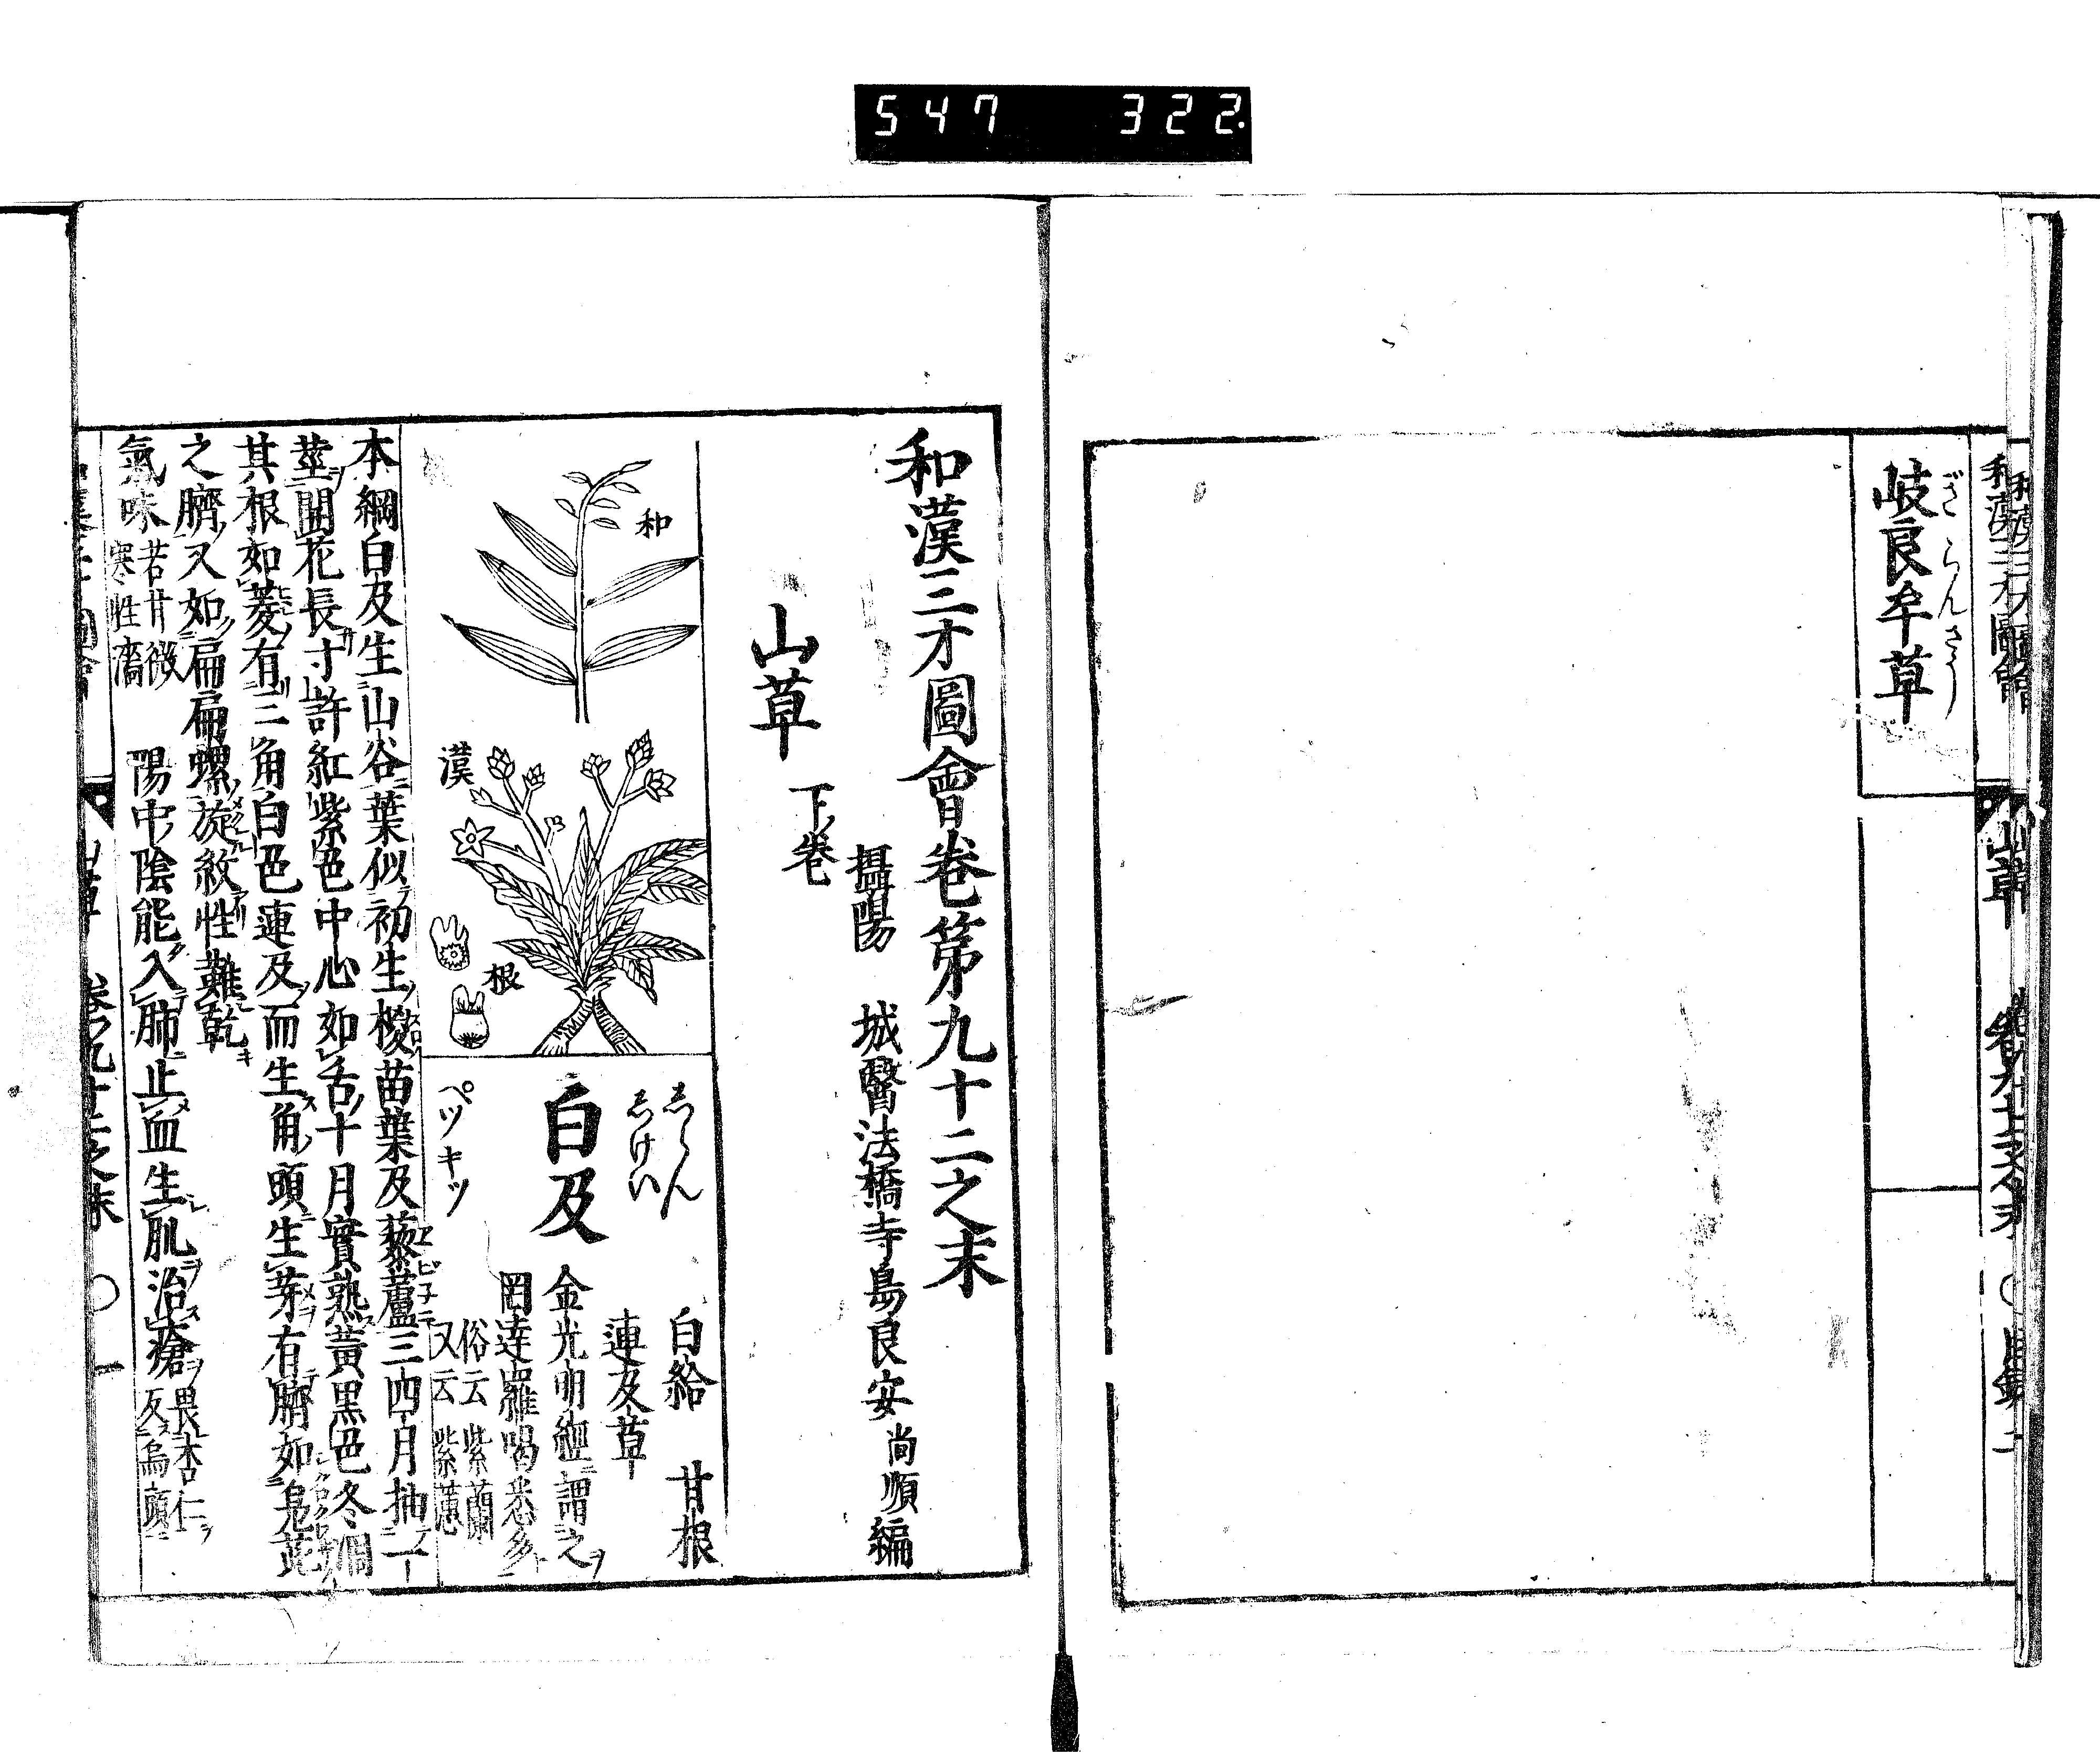 547 322.
岐良牟草
ぎらんさう
和漢三才圖會 山草 卷九十二之末 ○ 目録 二
和漢三才圖會卷第九十二之末
攝陽 城醫法橋寺島良安尚順編
山草 下卷
和
漢
根
しらん
しけい
白及
ペツキツ
白給 甘根
連及草
金光明經謂之
罔達羅喝悉多
俗云紫蘭
又云紫蕙
本綱白及生山谷葉似初生椶苗葉及藜蘆三四月抽一
莖開花長寸許紅紫色中心如舌十月實熟黃黒色冬凋
其根如菱有三角白色連及而生角頭生芽有臍如鳬茈
之臍又如扁扁螺旋紋性難乾
氣味 苦甘微寒性濇 陽中陰能入肺止血生肌治瘡 畏杏仁反烏頭
山草 卷九十二之末 ○ 一